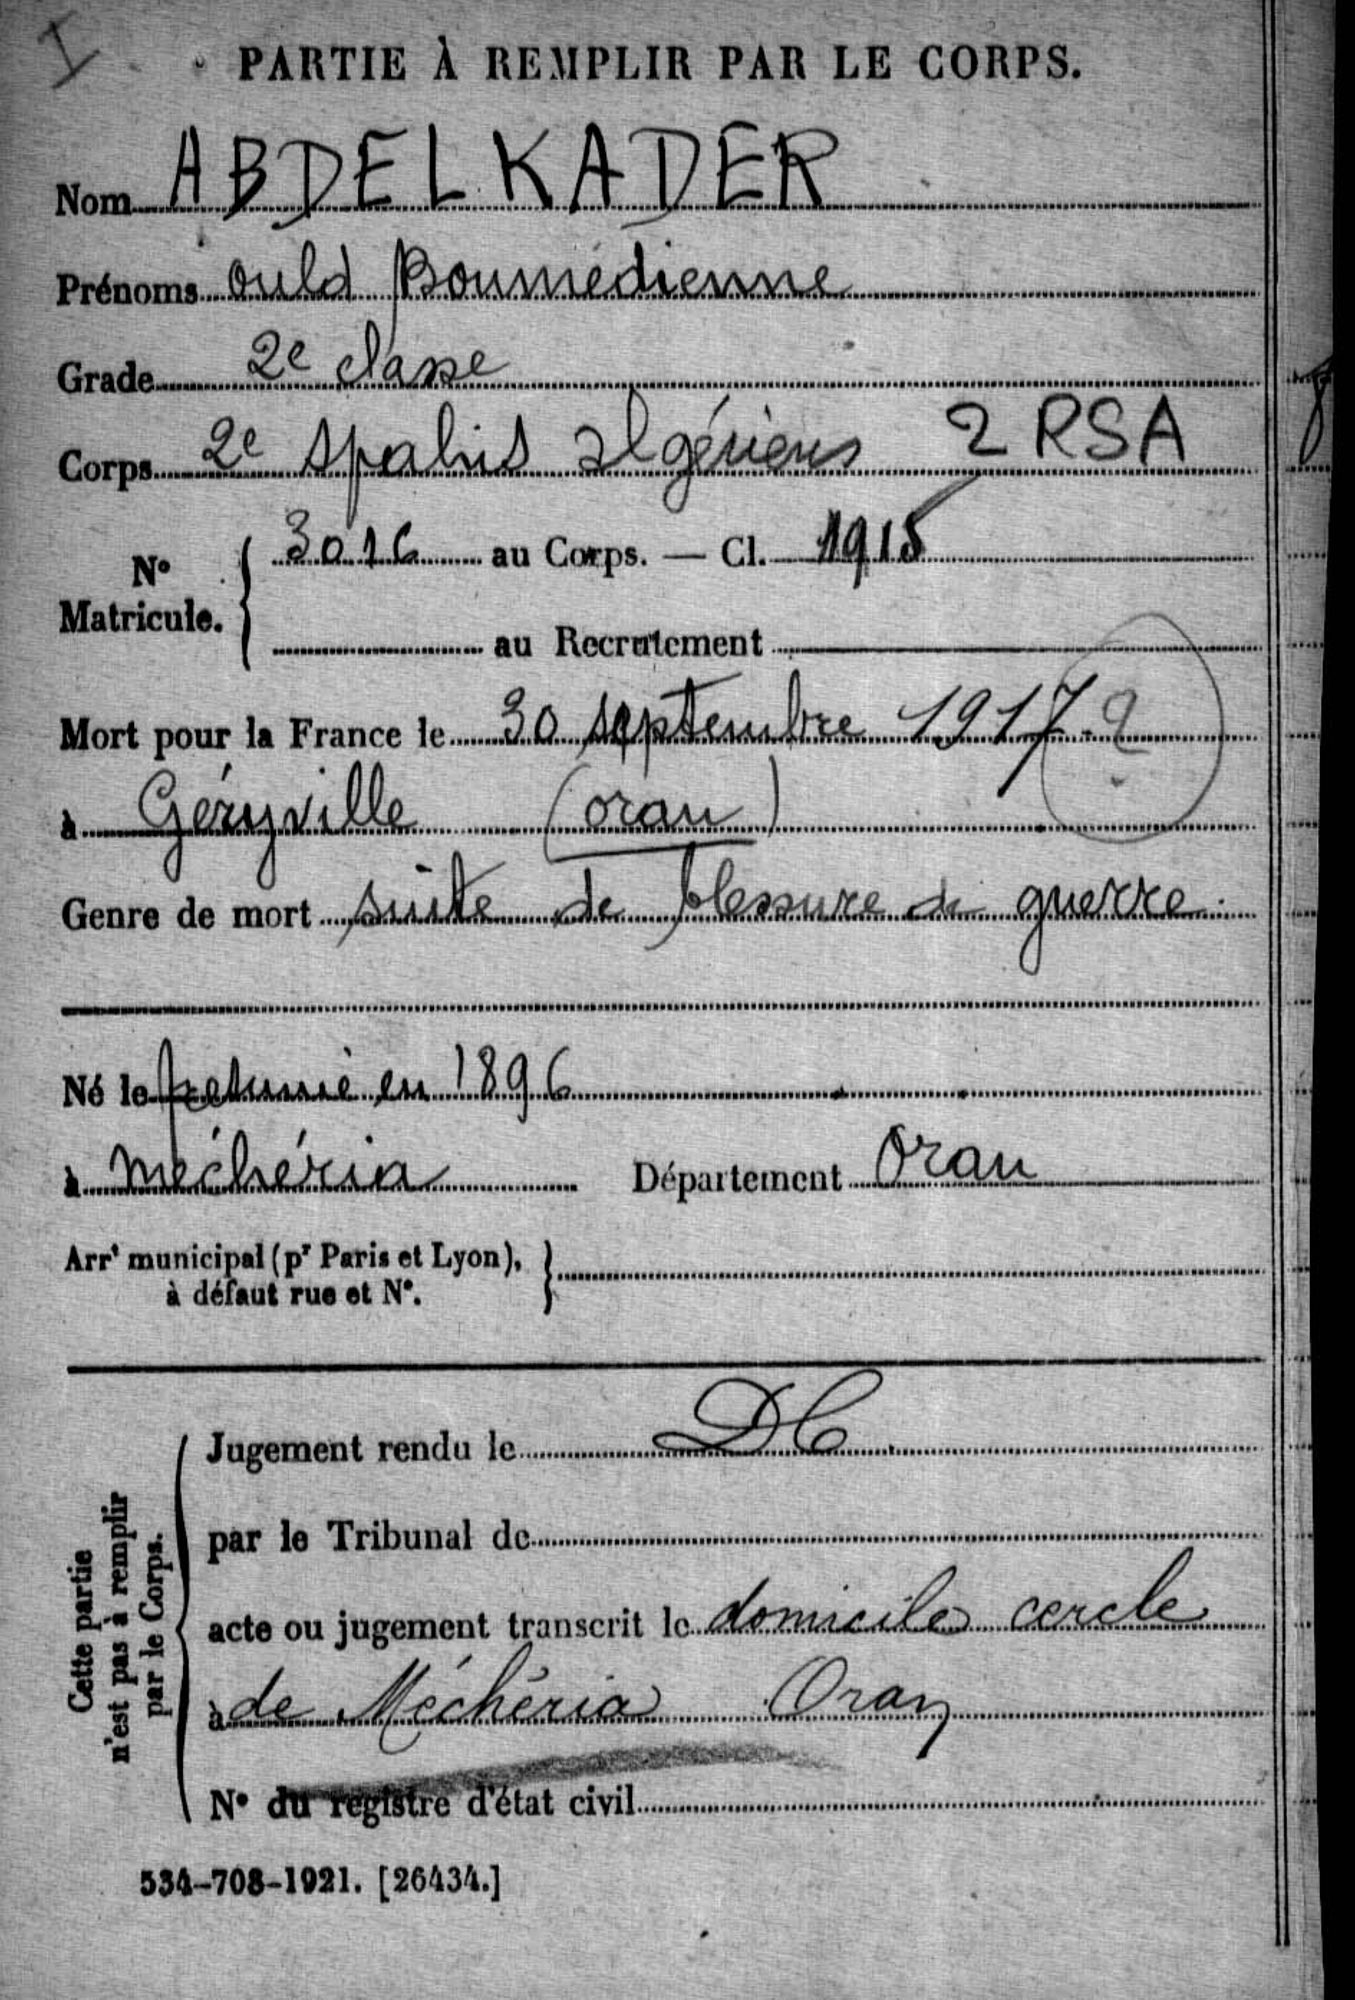 I
PARTIE À REMPLIR PAR LE CORPS.
Nom ABDELKADER
Prénoms ould Boumédienne
Grade 2e classe
Corps 2e spahis algériens 2 RSA
N° Matricule. 3016 au Corps. — Cl. 1915
au Recrutement
Mort pour la France le 30 septembre 1917 ?
à Géryville (oran)
Genre de mort suite de blessure de guerre
Né le présumé en 1896
à Méchéria Département Oran
Arrt municipal (pr Paris et Lyon),
à défaut rue et N°.
Cette partie
n'est pas à remplir
par le Corps.
Jugement rendu le DC
par le Tribunal de
acte ou jugement transcrit le domicile cercle
à de Méchéria Oran
N° du registre d'état civil
534-708-1921. [26434.]